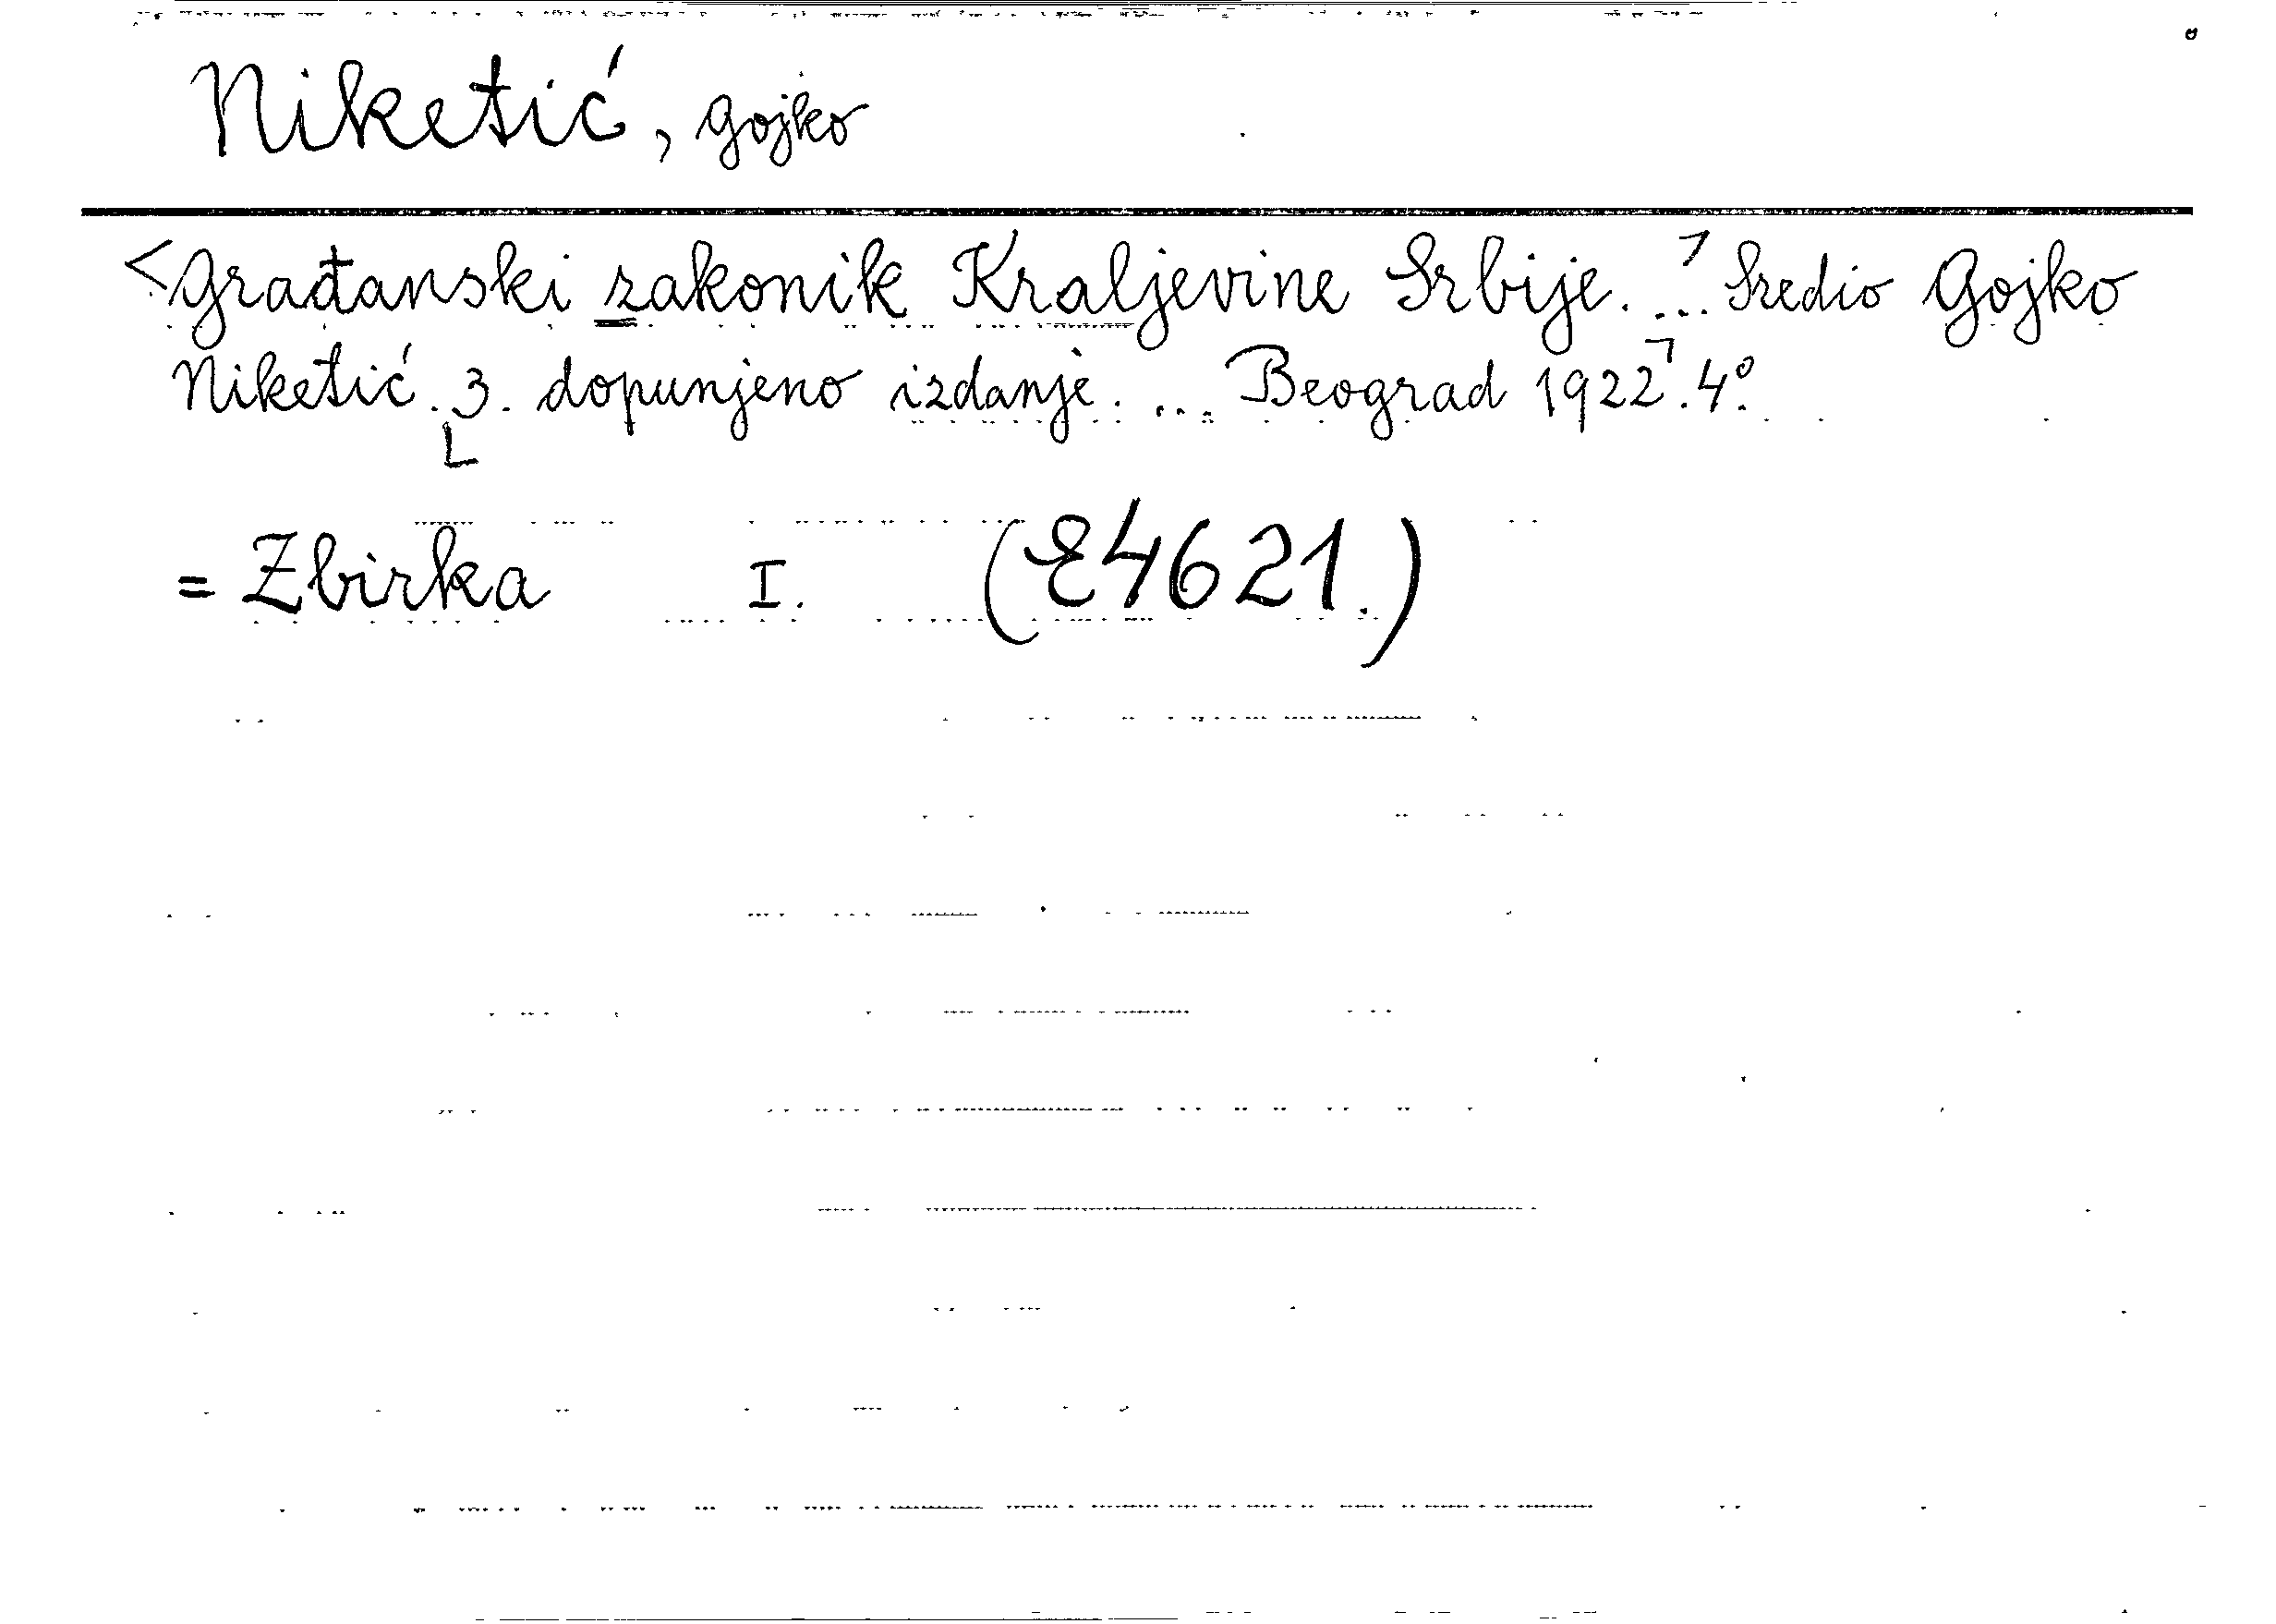 Niketić, Gojko
<Građanski zakonik Kraljevine Srbije. ...> Sredio Gojko
Niketić. 3. dopunjeno izdanje. ... Beograd 1922. 4°.
= Zbirka I. (E4621.)